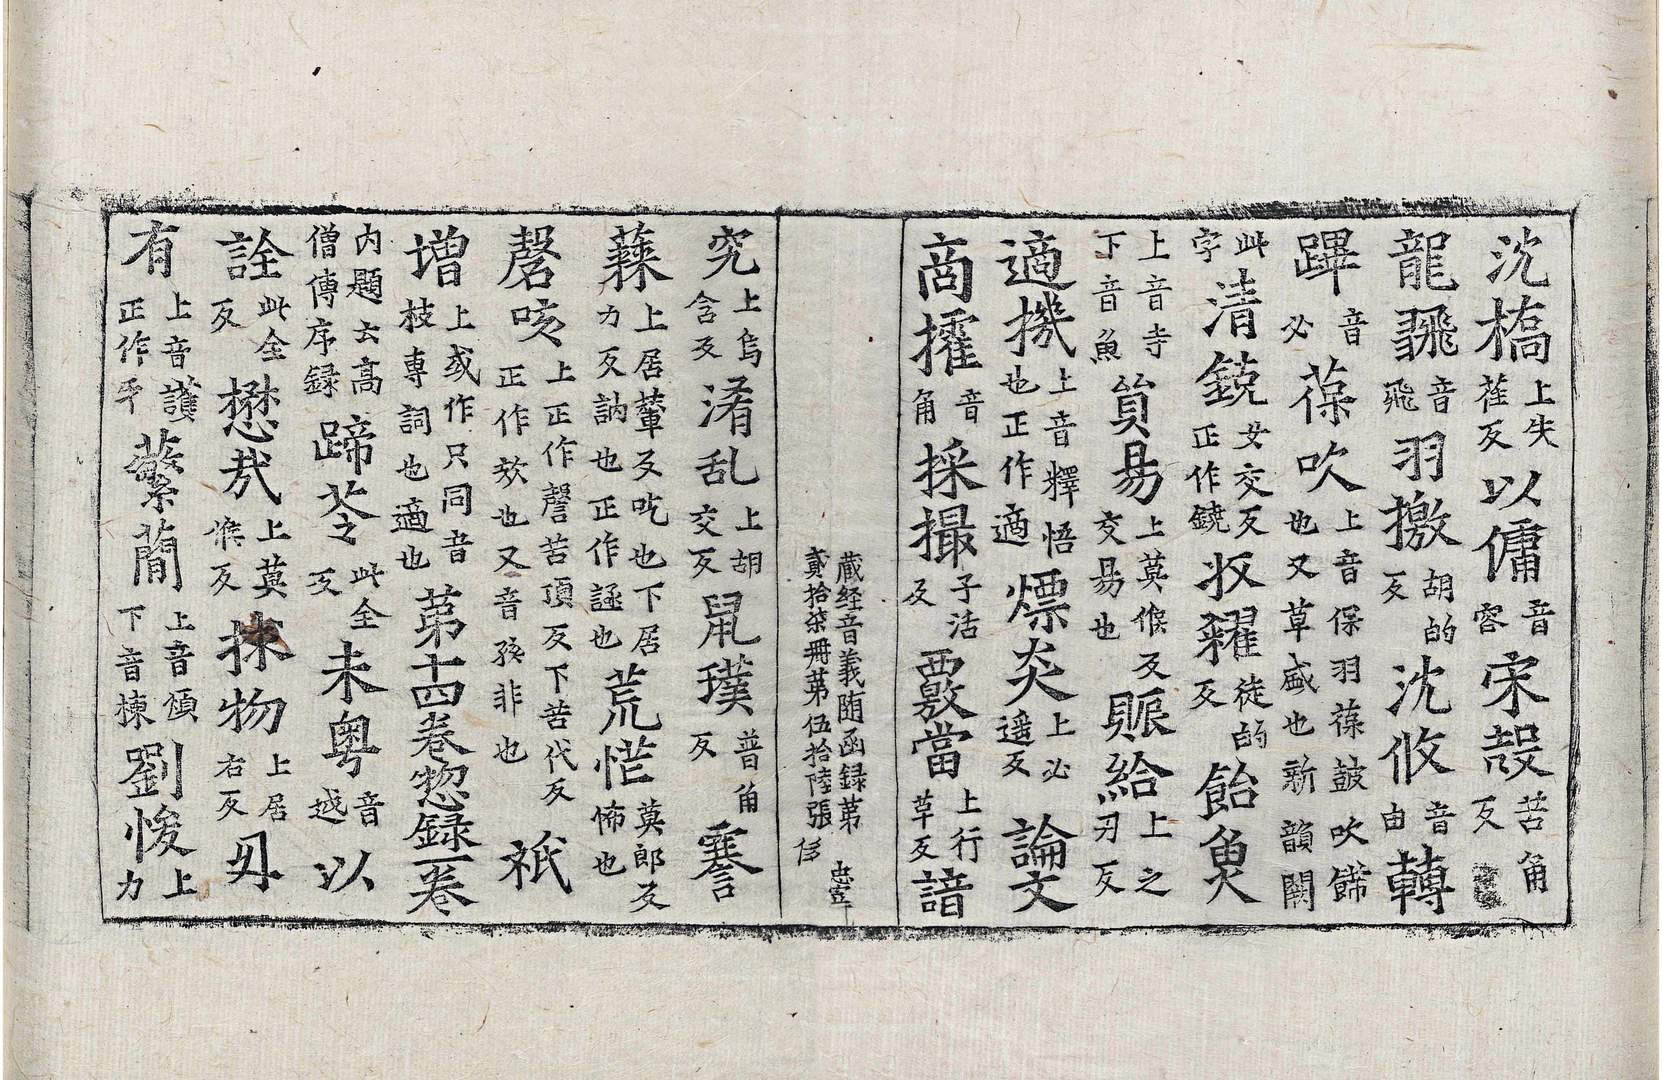 沈橋上失萑反以傭音容宋㲉苦角反
龍飛音飛羽擞胡的反沈攸音由轉
蹕音必葆吹上音保羽葆鼓吹餙也又草盛也新韻闕
此字清鐃女交反正作鐃收糴徒的反飴魚
上音寺下音魚貿易上莫候反交易也賑給上之刃反
適機上音釋悟也正作適熛炎上必遥反論文
商搉音角採撮子活反覈當上行草反諳
藏経音義随函録第貳拾柒冊第伍拾陸張
究上烏含反淆乱上胡交反鼠璞普角反謇
蕀上居輦反吃也下居力反訥也正作誣也荒恾莫郎反怖也
磬咳上正作謦苦頂反下苦代反正作欬也又音孩非也祇
增上或作只同音枝専詞也適也第十四巻惣録一卷
内題云髙僧傳序録蹄筌此全反未粤音越以
詮此全反懋哉上莫候反㧡物上居右反毋
有上音護正作乎蘩蕳上音煩下音棟劉悛上力